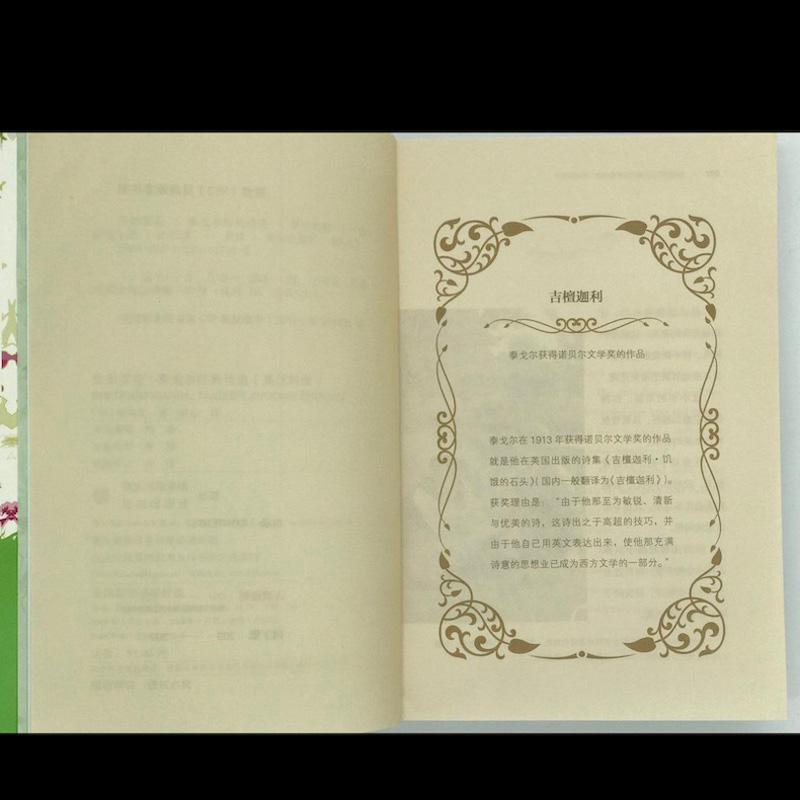 吉檀迦利
泰戈尔获得诺贝尔文学奖的作品
泰戈尔在 1913 年获得诺贝尔文学奖的作品
就是他在英国出版的诗集《吉檀迦利·饥
饿的石头》(国内一般翻译为《吉檀迦利》)。
获奖理由是：“由于他那至为敏锐、清新
与优美的诗，这诗出之于高超的技巧，并
由于他自己用英文表达出来，使他那充满
诗意的思想业已成为西方文学的一部分。”